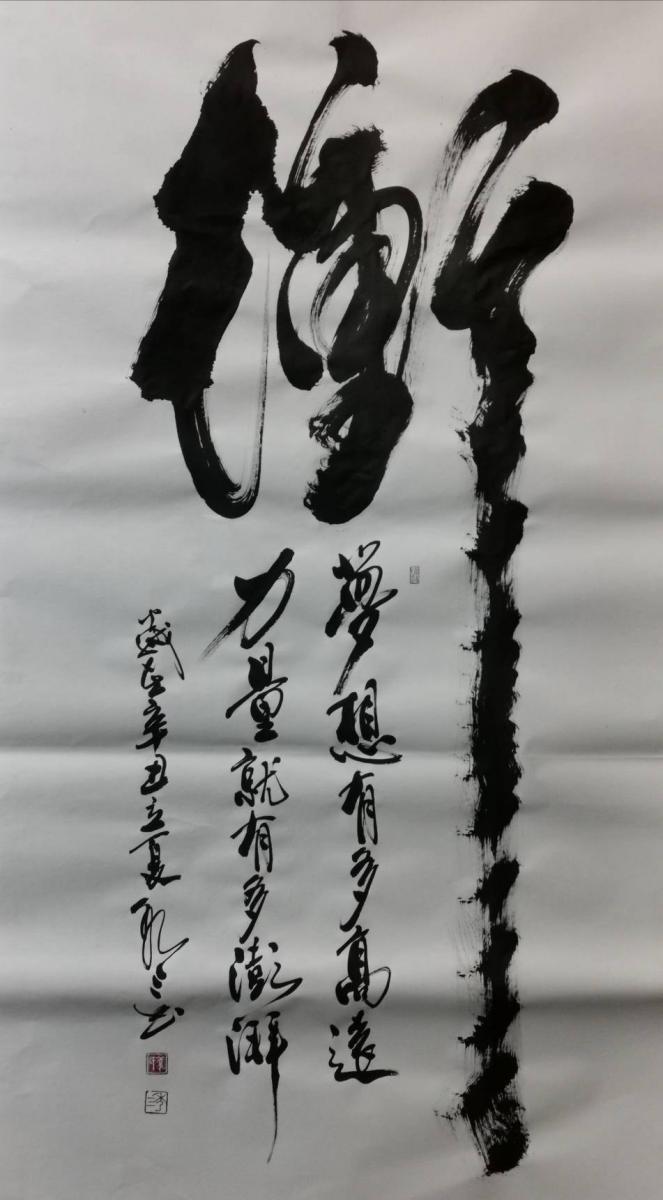 衝
夢想有多高遠
力量就有多澎湃
歲在辛丑立夏